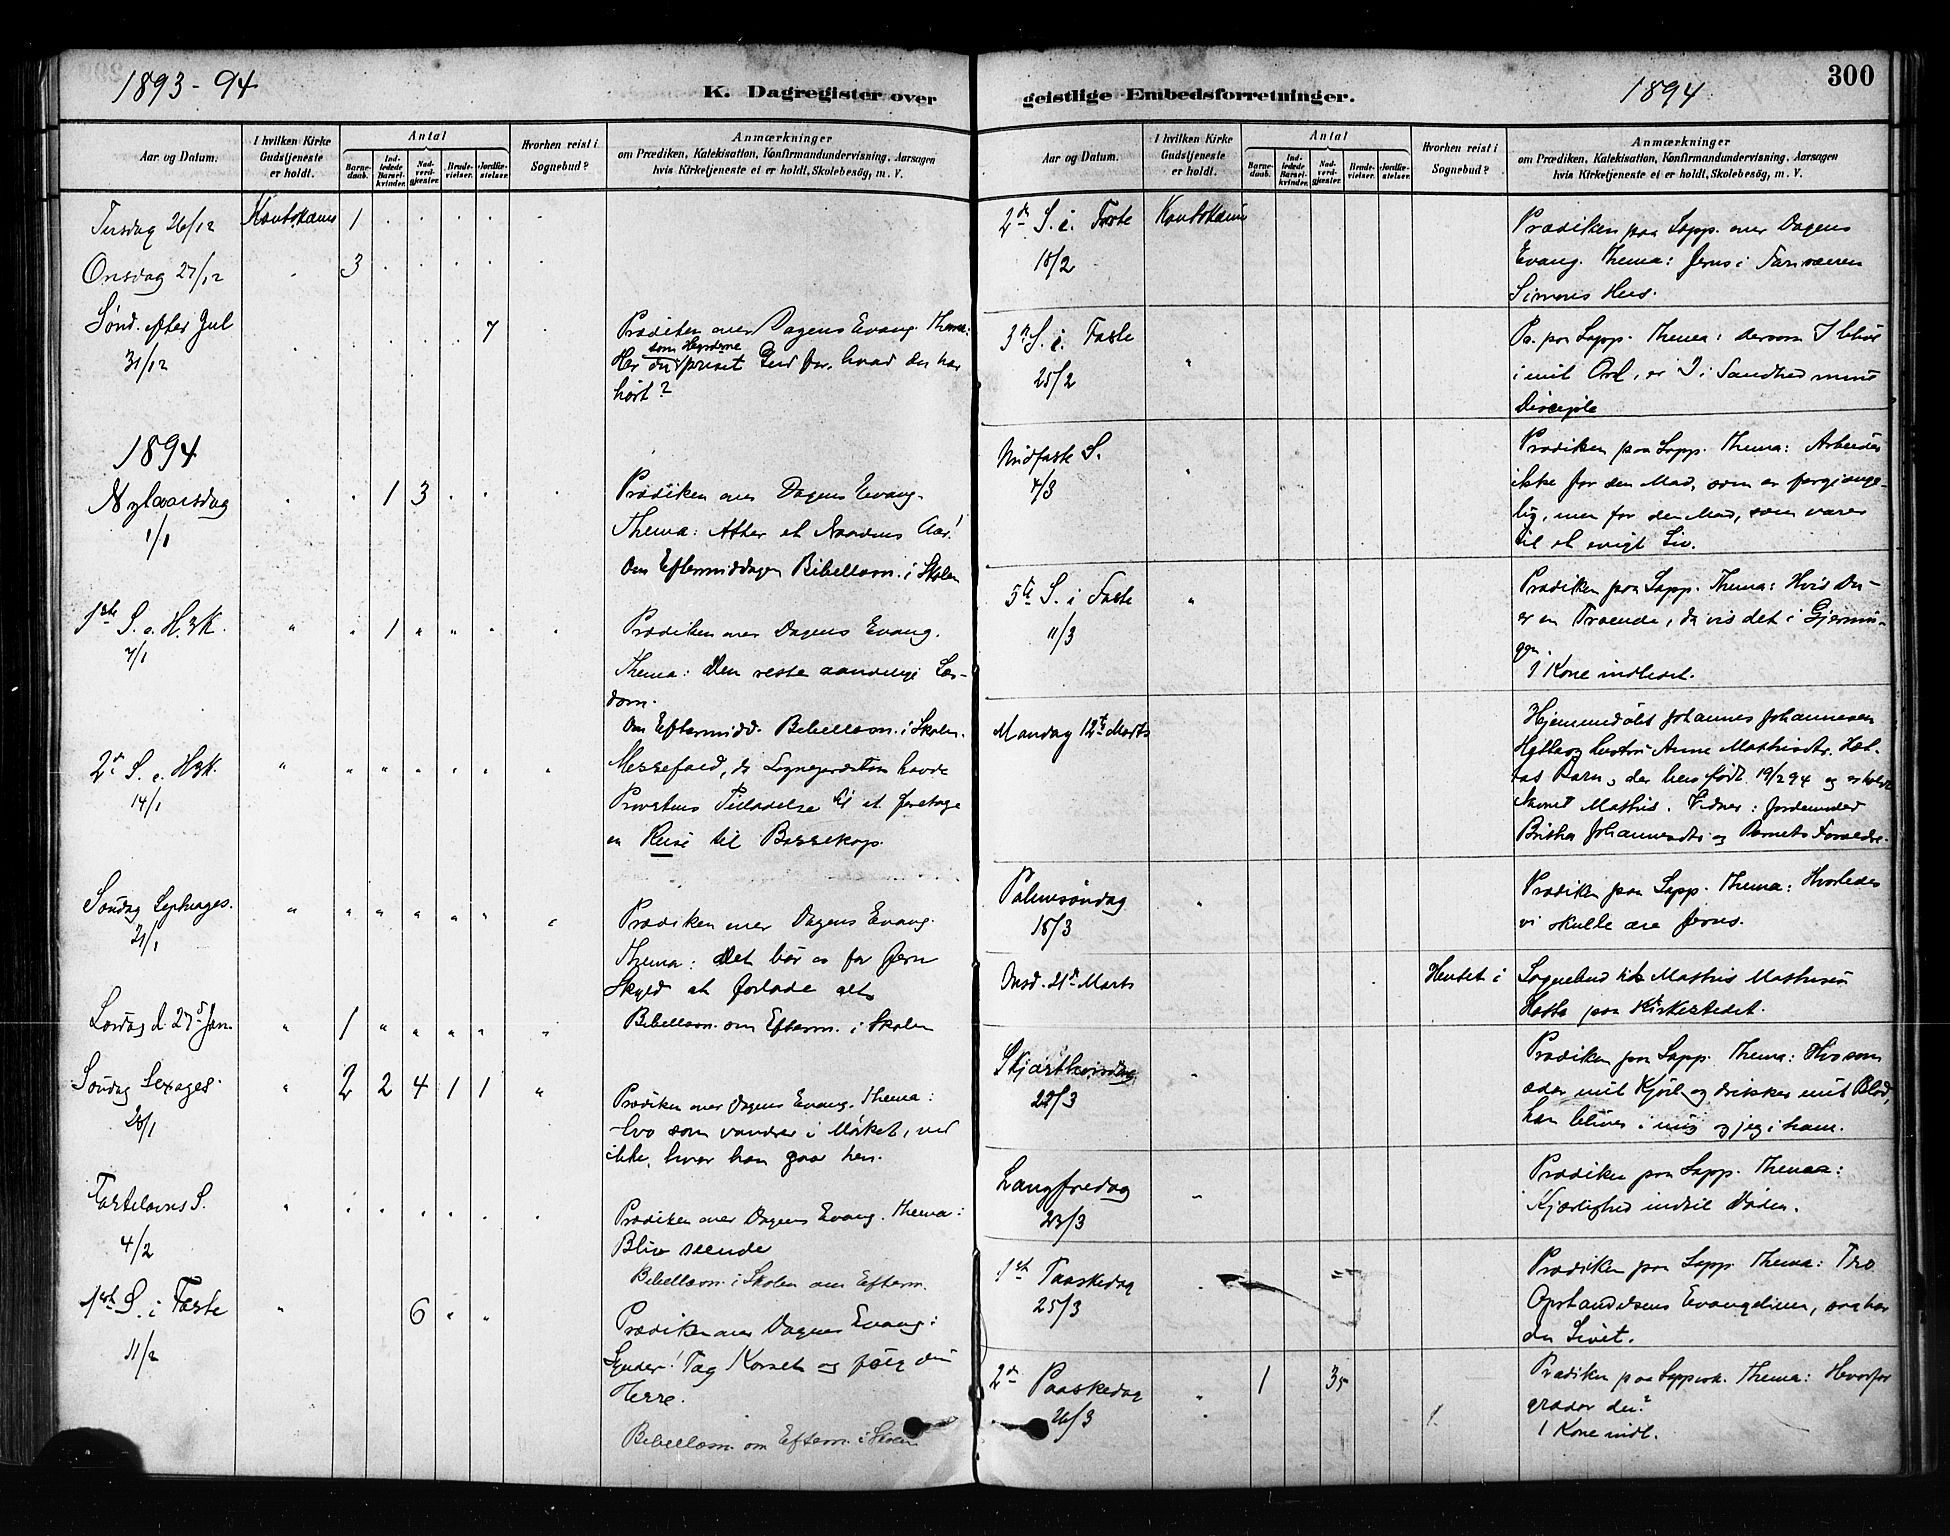 1893-94
K. Dagregister over
Aar og Datum.
I hvilken Kirke Gudstjeneste er holdt.
Antal
Barnedaab.
Indledede Barselkvinder.
Nadverdgjæster.
Brudevielser.
Jordfæstelser.
Hvorhen reist i Sognebud?
Anmærkninger
om Prædiken, Katekisation, Konfirmandundervisning, Aarsagen
hvis Kirketjeneste ei er holdt, Skolebesøg, m. V.
Tirsdag 26/12 Kautokeino 1
Onsdag 27/12 3
Sønd. efter Jul 7 Prædiken over Dagens Evang. Thema:
31/12 Har du som Hyrderne priset Gud for, hvad du har
hørt?
1894
Nytaarsdag 1 3 Prædiken over Dagens Evang.
1/1 Thema: Atter et Naadens Aar!
Om Eftermiddagen Bibellæsn. i Skolen
1ste S. e. H3K. " " 1 " " " " Prædiken over Dagens Evang.
7/1 Thema: Den rette aandelige
Om Eftermidd. Bibellæsn. i Skolen.
2d S. e. H3K. " " " " " " " Messefald, da Sognepræsten havde
14/1 Provstens Tilladelse til at foretage
en Reise til Bossekop.
Søndag Septuages. " " " " " " " Prædiken over Dagens Evang.
21/1 Thema: Det bør os for Jesu
Skyld at forlade alt
Lørdag d. 27de Jan. " 1 " " " " " Bibellæsn. om Efterm. i Skolen
Søndag Sexages. " 2 2 4 1 1 " Prædiken over Dagens Evang. Thema:
28/1 Hvo som vandrer i Mørket, ved
ikke, hvor han gaar hen.
Fastelavns S. Prædiken over Dagens Evang. Thema:
4/2 Bliv seende
Bibellæsn. i Skolen om Efterm.
1ste S. i Faste " 6 " " Prædiken over Dagens Evang:
11/2 Synder! Tag Korset og følg din
Herre.
Bibellæsn. om Efterm. i Skolen
geistlige Embedsforretninger.
1894
300
Aar og Datum.
I hvilken Kirke Gudstjeneste er holdt.
Antal
Barnedaab.
Indledede Barselkvinder.
Nadverdgjæster.
Brudevielser.
Jordfæstelser.
Hvorhen reist i Sognebud?
Anmærkninger
om Prædiken, Katekisation, Konfirmandundervisning, Aarsagen
hvis Kirketjeneste ei er holdt, Skolebesøg, m. V.
2den S. i. Faste Kautokeino Prædiken paa Lapp. over Dagens
18/2 Evang. Thema: Jesus i Farisæeren
Simons Hus.
3die S. i. Faste " Pr. paa Lapp. Thema: dersom I blive
25/2 i mit Ord, er I i Sandhed mine
Disciple
Midfaste S. " Prædiken paa Lapp. Thema: Arbeider
4/3 ikke for den Mad, som er forgjænge-
lig, men for den Mad, som varer
til et evigt Liv.
5te S. i Faste " Prædiken paa Lapp. Thema: Hvis Du
11/3 er en Troende, da vis det i Gjernin-
gen.
1 Kone indledet.
Mandag 12te Marts Hjemmedøbt Johannes Johannesen
Hætta og Hustru Anne Mathisdtr. Hæt-
tas Barn, der blev født 19/2 94 og
Navnet Mathis. Vidner: Jordemoder
Britha Johannesdtr og Barnets Forældre.
Palmesøndag " Prædiken paa Lapp. Thema: Hvorledes
18/3 vi skulle ære Jesus.
Onsd. 21de Marts Hentet i Sognebud til Mathis Mathisen
Hætta paa Kirkestedet.
Skjærthorsdag " Prædiken paa Lapp. Thema: Hvo som
22/3 æder mit Kjød og drikker mit Blod,
han bliver i mig og jeg i ham.
Langfredag " Prædiken paa Lapp. Thema:
23/3 Kjærlighed indtil Døden.
1ste Paaskedag " Prædiken paa Lapp. Thema: Tro
25/3 Opstandelsens Evangelium, saa har
du Livet.
2den Paaskedag " 1 35 Prædiken paa Lappisk. Thema: Hvorfor
26/3 græder du?
1 Kone indl.